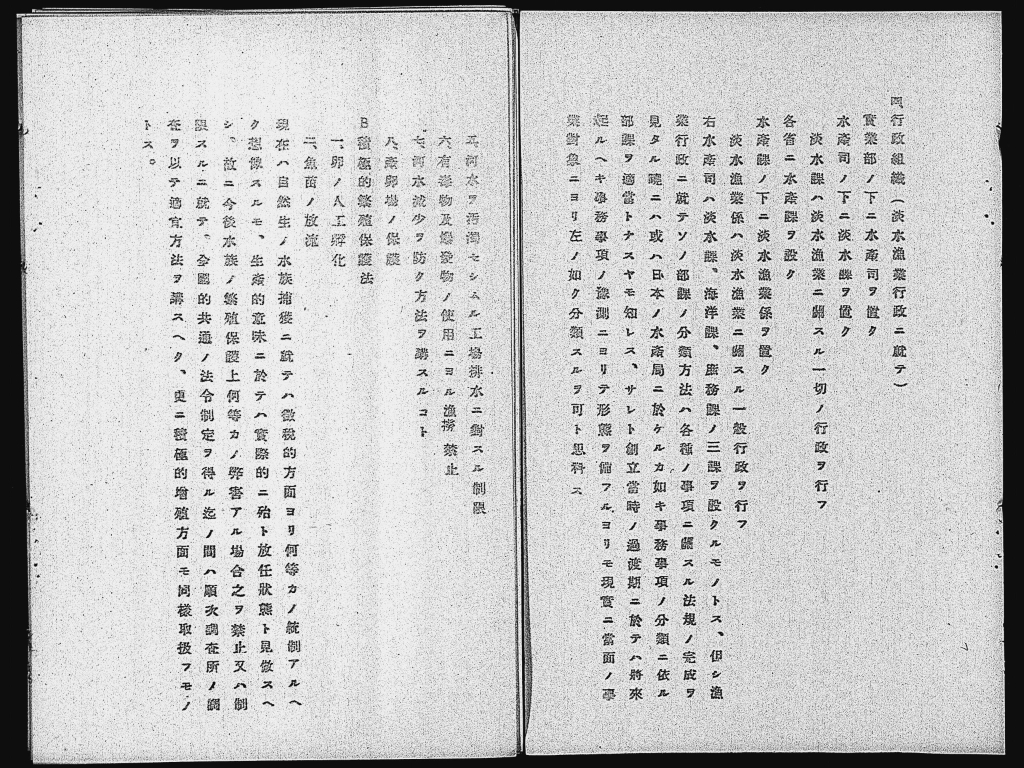 四、行政組織(淡水漁業行政ニ就テ)
實業部ノ下ニ水產司ヲ置ク
水產司ノ下ニ淡水課ヲ置ク
淡水課ハ淡水漁業ニ關スル一切ノ行政ヲ行フ
各省ニ水產課ヲ設ク
水產課ノ下ニ淡水漁業係ヲ置ク
淡水漁業係ハ淡水漁業ニ關スル一般行政ヲ行フ
右水產司ハ淡水課、海洋課、庶務課ノ三課ヲ設クルモノトス、但シ漁
業行政ニ就テソノ部課ノ分類方法ハ各種ノ事項ニ關スル法規ノ完成ヲ
見タル曉ニハ或ハ日本ノ水產局ニ於ケルカ如キ事務事項ノ分類ニ依ル
部課ヲ適當トナスヤモ知レス、サレト創立當時ノ過渡期ニ於テハ將來
起ルヘキ事務事項ノ豫測ニヨリテ形態ヲ備フルヨリモ現實ニ當面ノ事
業對象ニヨリ左ノ如ク分類スルヲ可ト思料ス
五、河水ヲ汚濁セシムル工場排水ニ對スル制限
六、有毒物及爆發物ノ使用ニヨル漁撈禁止
七、河水減少ヲ防ク方法ヲ講スルコト
八、產卵場ノ保護
B積極的繁殖保護法
一、卵ノ人工孵化
二、魚苗ノ放流
現在ハ自然生ノ水族捕獲ニ就テハ徵稅的方面ヨリ何等カノ統制アルヘ
ク想像スルモ、生產的意味ニ於テハ實際的ニ殆ト放任狀態ト見做スヘ
シ。故ニ今後水族ノ繁殖保護上何等カノ弊害アル場合之ヲ禁止又ハ制
限スルニ就テ。全國的共通ノ法令制定ヲ得ル迄ノ間ハ順次調査所ノ調
査ヲ以テ適宜方法ヲ講スヘク、更ニ積極的增殖方面モ同樣取扱フモノ
トス。